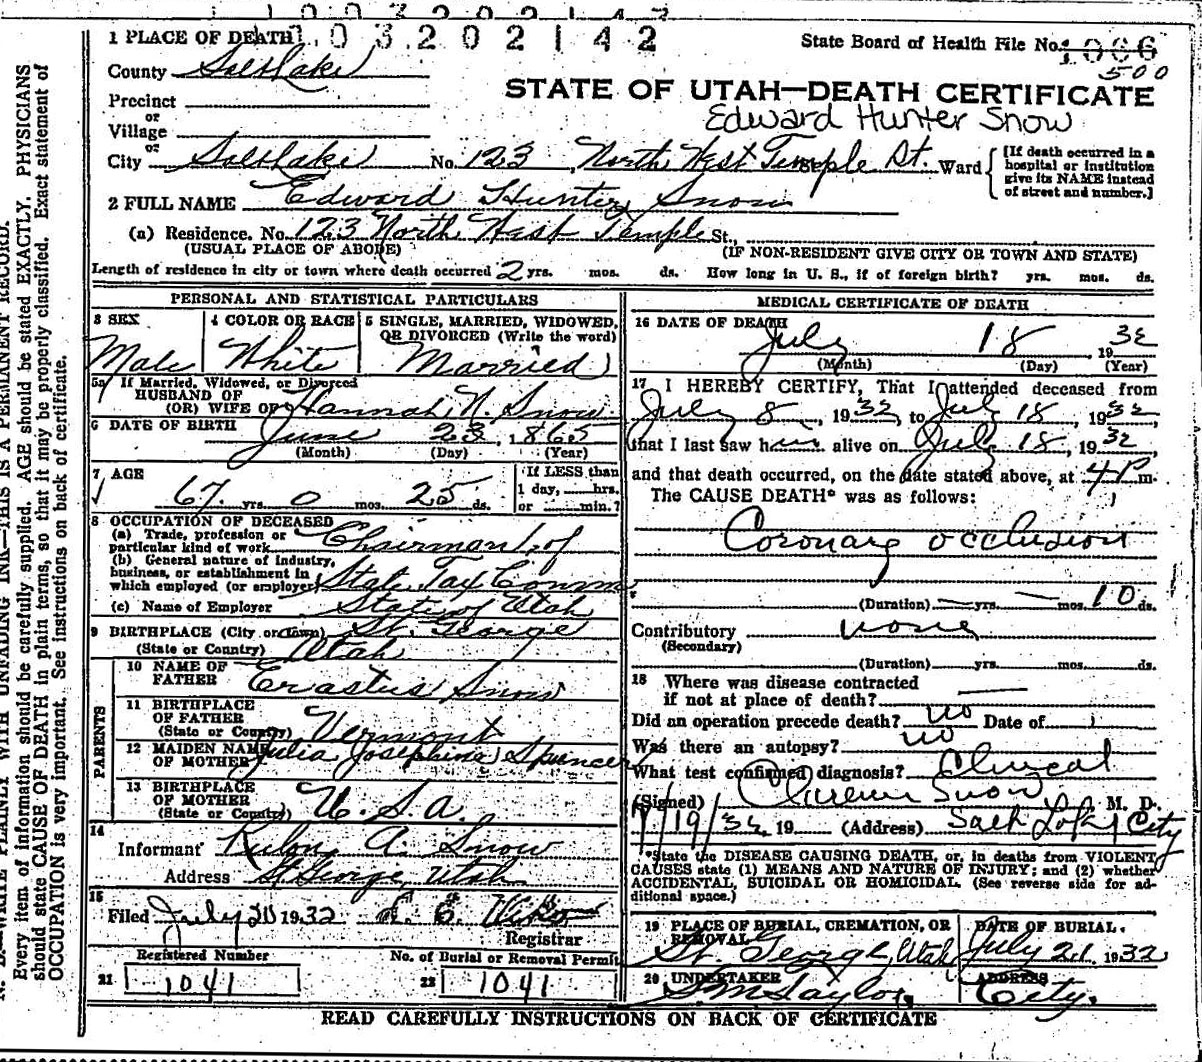 1003202142
State Board of Health File No. 1006
500
1 PLACE OF DEATH
County Salt Lake
STATE OF UTAH—DEATH CERTIFICATE
Edward Hunter Snow
Precinct
or
Village
or
City Salt Lake No. 123 North West Temple St. Ward
[If death occurred in a
hospital or institution
give its NAME instead
of street and number.]
2 FULL NAME Edward Hunter Snow
(a) Residence. No. 123 North West Temple St.,
(USUAL PLACE OF ABODE) (IF NON-RESIDENT GIVE CITY OR TOWN AND STATE)
Length of residence in city or town where death occurred 2 yrs. mos. ds. How long in U. S., if of foreign birth? yrs. mos. ds.
PERSONAL AND STATISTICAL PARTICULARS
3 SEX
Male
4 COLOR OR RACE
White
5 SINGLE, MARRIED, WIDOWED,
OR DIVORCED (Write the word)
Married
5a If Married, Widowed, or Divorced
HUSBAND OF
(OR) WIFE OF Hannah N. Snow
6 DATE OF BIRTH June 23, 1865
(Month) (Day) (Year)
7 AGE
67 yrs. 0 mos. 25 ds.
If LESS than
1 day, hrs.
or min.?
8 OCCUPATION OF DECEASED
(a) Trade, profession or
particular kind of work Chairman of
(b) General nature of industry,
business, or establishment in
which employed (or employer) State Tax Comm
(c) Name of Employer State of Utah
9 BIRTHPLACE (City or town) St. George
(State or Country) Utah
PARENTS
10 NAME OF
FATHER Erastus Snow
11 BIRTHPLACE
OF FATHER
(State or Country) Vermont
12 MAIDEN NAME
OF MOTHER Julia Josephine Spencer
13 BIRTHPLACE
OF MOTHER
(State or Country) U. S. A.
14
Informant Rulon A. Snow
Address St George, Utah
15
Filed July 20 1932
Registrar
Registered Number
21 1041
No. of Burial or Removal Permit
22 1041
MEDICAL CERTIFICATE OF DEATH
16 DATE OF DEATH
July 18 1932
(Month) (Day) (Year)
17 I HEREBY CERTIFY, That I attended deceased from
July 8, 1932, to July 18, 1932
that I last saw him alive on July 18, 1932
and that death occurred, on the date stated above, at 4 P m.
The CAUSE DEATH* was as follows:
Coronary occlusion
(Duration) yrs. mos. 10 ds.
Contributory none
(Secondary)
(Duration) yrs. mos. ds.
18 Where was disease contracted
if not at place of death?
Did an operation precede death? no Date of
Was there an autopsy? no
What test confirmed diagnosis? Clinical
(Signed) Clarence Snow, M. D.
7/19/32, 19 (Address) Salt Lake City
*State the DISEASE CAUSING DEATH, or, in deaths from VIOLENT
CAUSES state (1) MEANS AND NATURE OF INJURY; and (2) whether
ACCIDENTAL, SUICIDAL OR HOMICIDAL. (See reverse side for ad-
ditional space.)
19 PLACE OF BURIAL, CREMATION, OR
REMOVAL
St. George, Utah
DATE OF BURIAL.
July 21, 1932
20 UNDERTAKER
S. M. Taylor
ADDRESS
City.
READ CAREFULLY INSTRUCTIONS ON BACK OF CERTIFICATE
N. B.—WRITE PLAINLY WITH UNFADING INK—THIS IS A PERMANENT RECORD.
Every item of information should be carefully supplied. AGE should be stated EXACTLY. PHYSICIANS
should state CAUSE OF DEATH in plain terms, so that it may be properly classified. Exact statement of
OCCUPATION is very important. See instructions on back of certificate.